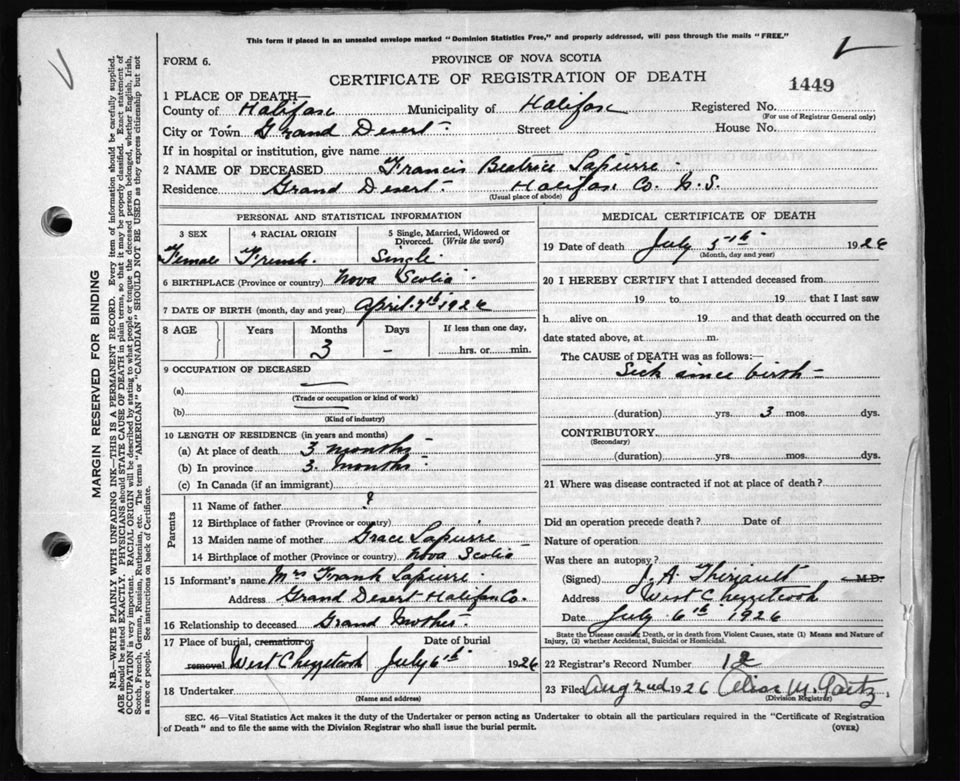 This form if placed in an unsealed envelope marked "Dominion Statistics Free," and properly addressed, will pass through the mails "FREE."
FORM 6.
PROVINCE OF NOVA SCOTIA
CERTIFICATE OF REGISTRATION OF DEATH
1449
1 PLACE OF DEATH—
County of Halifax Municipality of Halifax Registered No.
(For use of Registrar General only)
City or Town Grand Desert Street House No.
If in hospital or institution, give name
2 NAME OF DECEASED Francis Beatrice Lapierre
Residence Grand Desert Halifax Co. N.S.
(Usual place of abode)
PERSONAL AND STATISTICAL INFORMATION
3 SEX 4 RACIAL ORIGIN 5 Single, Married, Widowed or Divorced. (Write the word)
Female French. Single
6 BIRTHPLACE (Province or country) Nova Scotia
7 DATE OF BIRTH (month, day and year) April 7th 1926
8 AGE Years Months Days If less than one day,
3 – hrs. or min.
9 OCCUPATION OF DECEASED
(a)
(Trade or occupation or kind of work)
(b)
(Kind of industry)
10 LENGTH OF RESIDENCE (in years and months)
(a) At place of death 3 months
(b) In province 3. months
(c) In Canada (if an immigrant)
Parents
11 Name of father ?
12 Birthplace of father (Province or country)
13 Maiden name of mother Grace Lapierre
14 Birthplace of mother (Province or country) Nova Scotia
15 Informant's name Mrs Frank Lapierre
Address Grand Desert Halifax Co.
16 Relationship to deceased Grand Mother
17 Place of burial, cremation or removal West Chezzetcook
Date of burial July 6th 1926
18 Undertaker
(Name and address)
MEDICAL CERTIFICATE OF DEATH
19 Date of death July 5th 1926
(Month, day and year)
20 I HEREBY CERTIFY that I attended deceased from
19 to 19 that I last saw
h alive on 19 and that death occurred on the
date stated above, at m.
The CAUSE of DEATH was as follows:—
Sick since birth –
(duration) yrs. 3 mos. dys.
CONTRIBUTORY
(Secondary)
(duration) yrs. mos. dys.
21 Where was disease contracted if not at place of death?
Did an operation precede death? Date of
Nature of operation
Was there an autopsy?
(Signed) J. A. Theriault M.D.
Address West Chezzetcook
Date July 6th 1926
State the Disease causing Death, or in death from Violent Causes, state (1) Means and Nature of
Injury, (2) whether Accidental, Suicidal or Homicidal.
22 Registrar's Record Number 12
23 Filed Aug 2nd 1926
(Division Registrar)
SEC. 46—Vital Statistics Act makes it the duty of the Undertaker or person acting as Undertaker to obtain all the particulars required in the "Certificate of Registration
of Death" and to file the same with the Division Registrar who shall issue the burial permit.
(OVER)
MARGIN RESERVED FOR BINDING
N.B.—WRITE PLAINLY WITH UNFADING INK—THIS IS A PERMANENT RECORD. Every item of information should be carefully supplied.
AGE should be stated EXACTLY. PHYSICIANS should STATE CAUSE OF DEATH in plain terms, so that it may be properly classified. Exact statement of
OCCUPATION is very important. RACIAL ORIGIN will be described by stating to what people or tongue the deceased person belonged, whether English, Irish,
Scotch, French, German, Russian, Ruthenian, etc. The terms "AMERICAN" or "CANADIAN" SHOULD NOT BE USED as they express citizenship but not
a race or people. See instructions on back of Certificate.